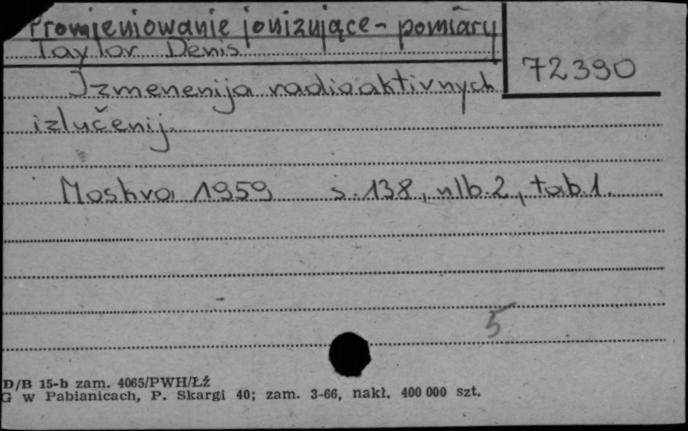 Promieniowanie jonizujące - pomiary
Taylor Denis
72390
Izmenenija radioaktivnych
izlučenij.
Moskva 1959 s. 138, nlb. 2, tab 1.
5
D/B 15-b zam. 4065/PWH/ŁŹ
G w Pabianicach, P. Skargi 40; zam. 3-66, nakł. 400 000 szt.